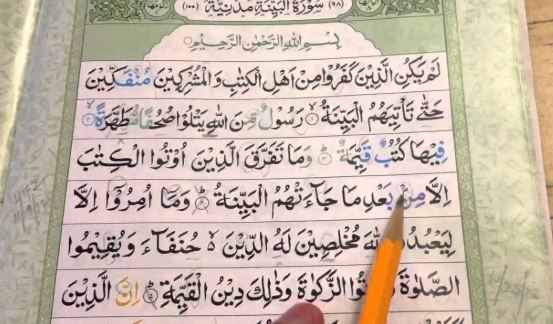 (٩٨) سُوْرَةُ الْبَيِّنَةِ مَدَنِيَّةٌ (١٠٠)
بِسْمِ اللّٰهِ الرَّحْمٰنِ الرَّحِيْمِ
لَمْ يَكُنِ الَّذِيْنَ كَفَرُوْا مِنْ اَهْلِ الْكِتٰبِ وَالْمُشْرِكِيْنَ مُنْفَكِّيْنَ
حَتّٰى تَاْتِيَهُمُ الْبَيِّنَةُ ۙ‏ ١ رَسُوْلٌ مِّنَ اللّٰهِ يَتْلُوْا صُحُفًا مُّطَهَّرَةً ۙ‏ ٢
فِيْهَا كُتُبٌ قَيِّمَةٌ ٣ وَمَا تَفَرَّقَ الَّذِيْنَ اُوْتُوا الْكِتٰبَ
اِلَّا مِنْۢ بَعْدِ مَا جَآءَتْهُمُ الْبَيِّنَةُ ٤ وَمَاۤ اُمِرُوْۤا اِلَّا
لِيَعْبُدُوا اللّٰهَ مُخْلِصِيْنَ لَهُ الدِّيْنَ ۙ حُنَفَآءَ وَيُقِيْمُوا
الصَّلٰوةَ وَيُؤْتُوا الزَّكٰوةَ وَذٰلِكَ دِيْنُ الْقَيِّمَةِ ٥ اِنَّ الَّذِيْنَ